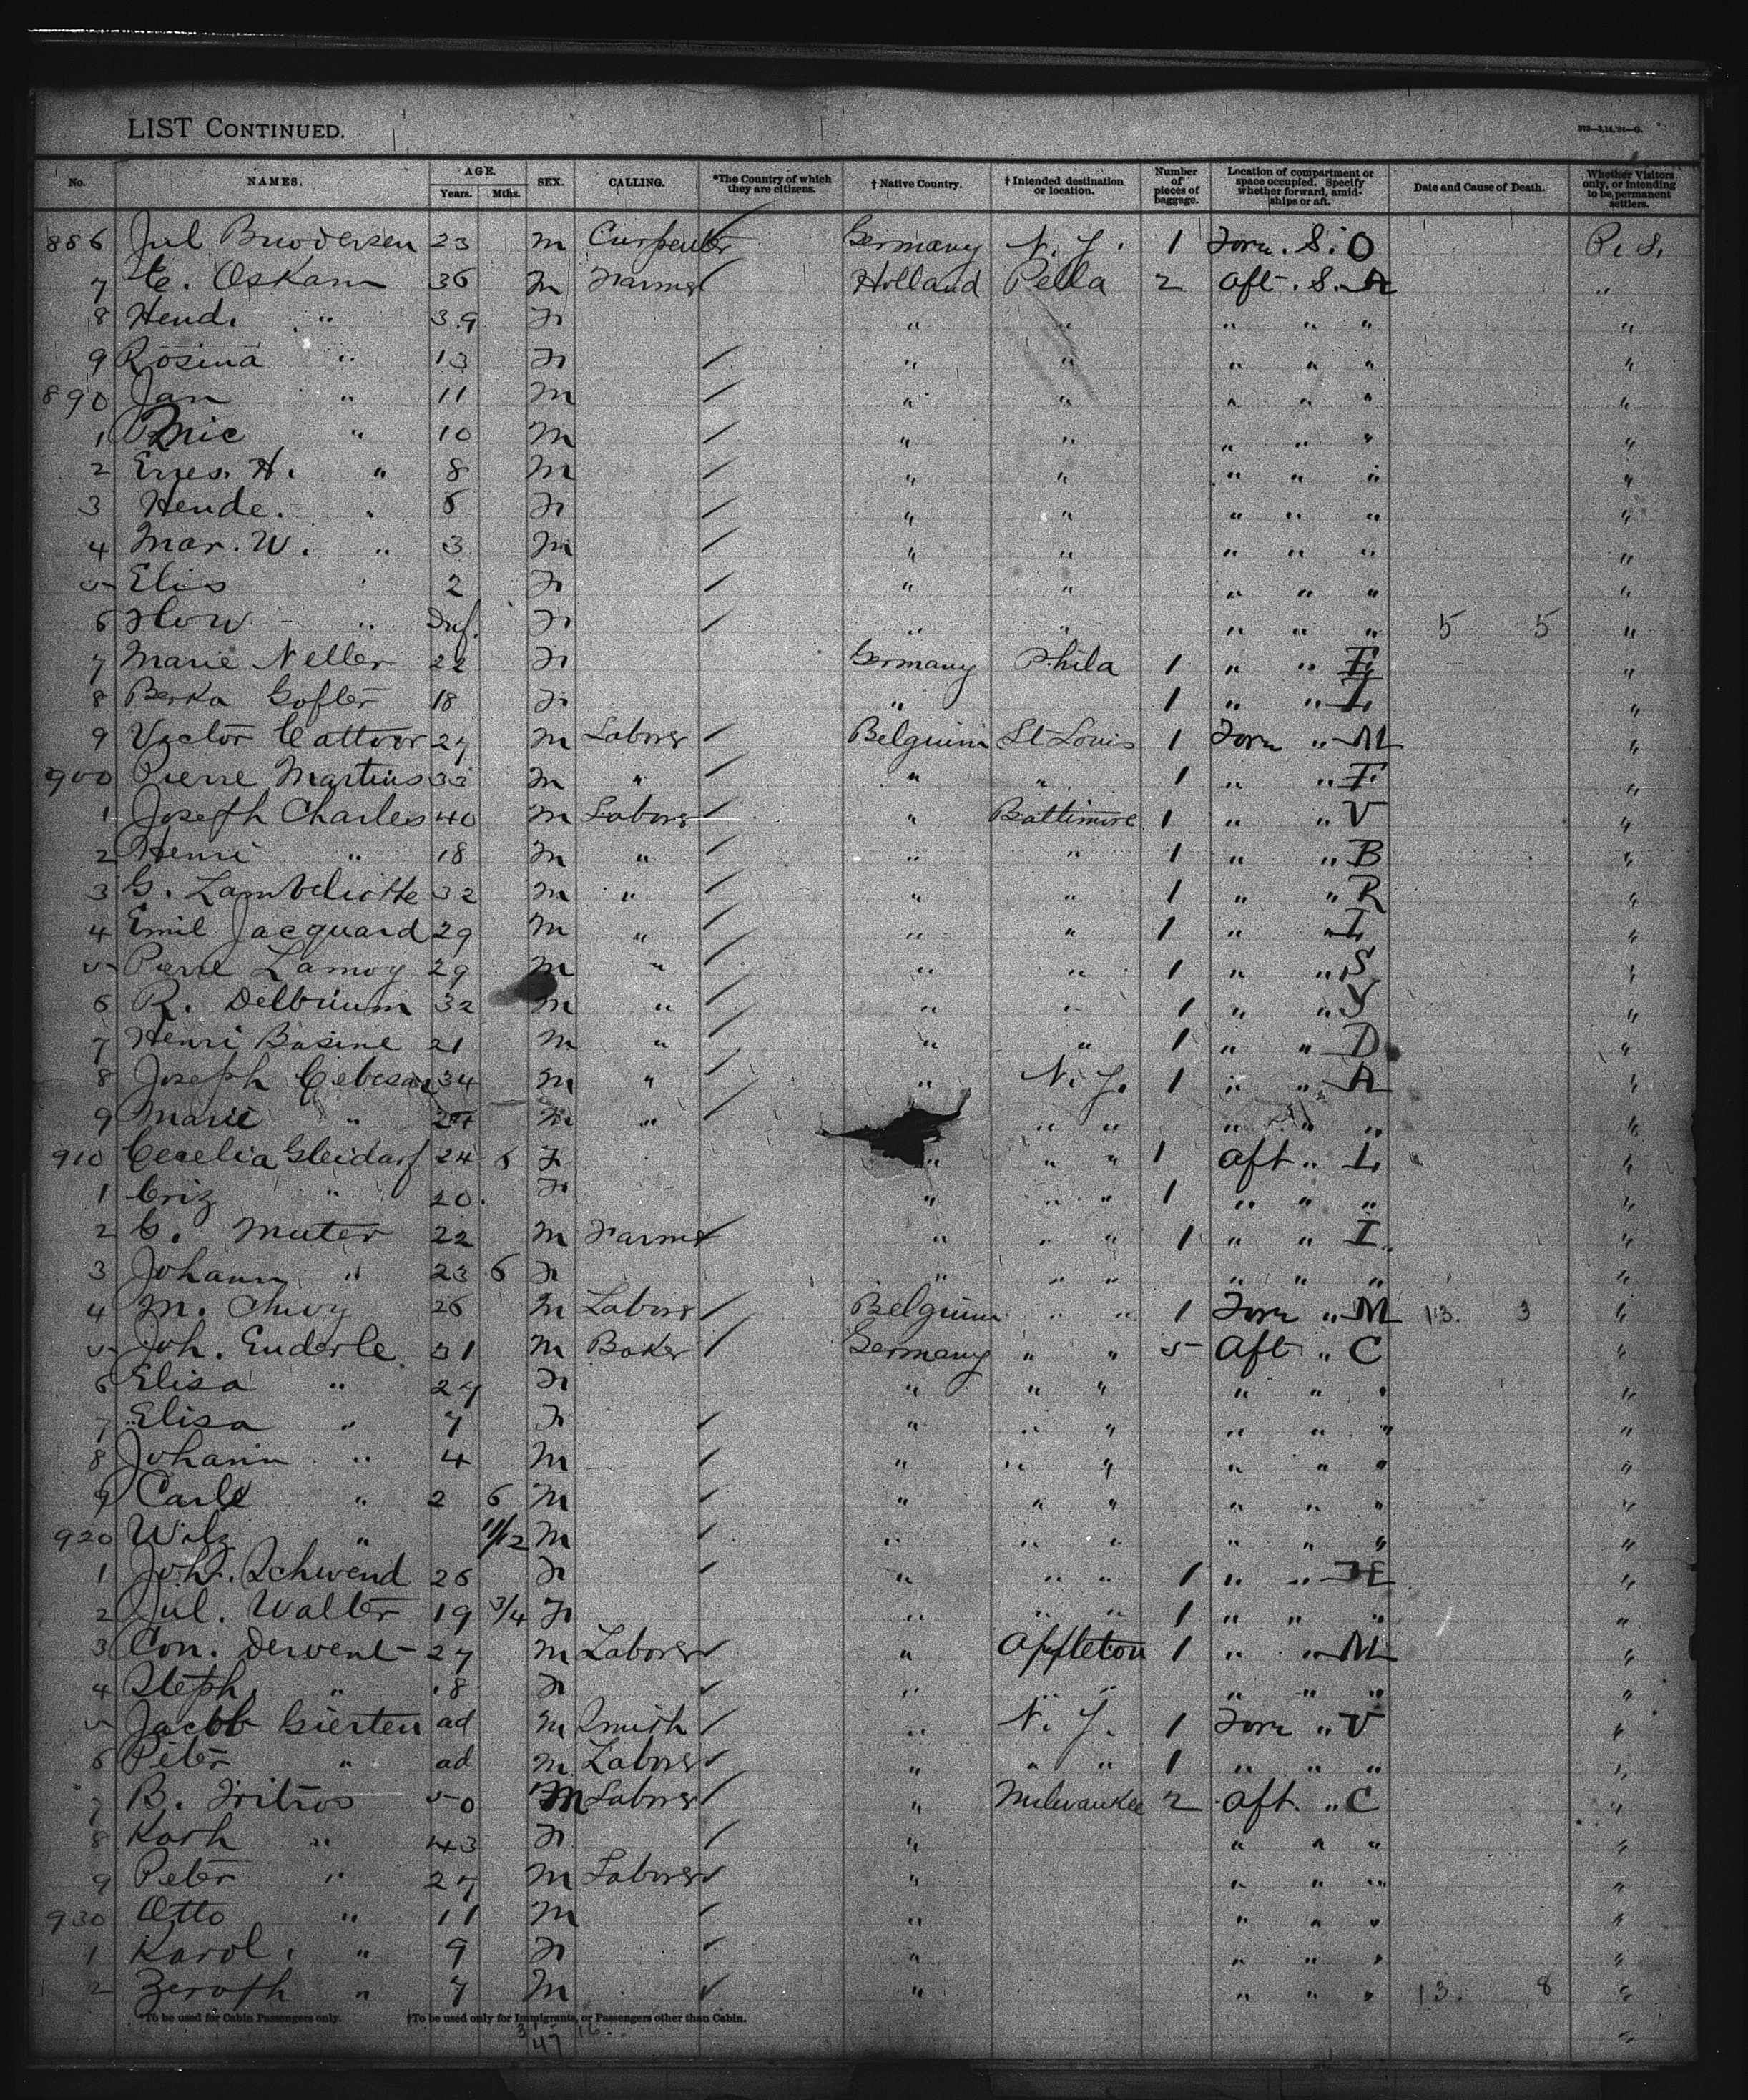 LIST CONTINUED.
No. NAMES. AGE. Years. Mths. SEX. CALLING. *The Country of which they are citizens. † Native Country. † Intended destination or location. Number of pieces of baggage. Location of compartment or space occupied. Specify whether forward, amidships or aft. Date and Cause of Death. Whether Visitors only, or intending to be permanent settlers.
886 Jul 23 m Carpenter Germany N. Y. 1 Forw. S. O P. S.
7 C. Oskam 36 m Farmer Holland Pella 2 Aft. S. A "
8 Hend. " 39 F " " " " " "
9 Rosina " 13 F " " " " " "
890 Jan " 11 m " " " " " "
1 " 10 m " " " " " "
2 H. " 8 m " " " " " "
3 Hende. " 6 F " " " " " "
4 Mar. W. " 3 m " " " " " "
5 Elis " 2 F " " " " " "
6 " Inf. F " " " " " 5 5 "
7 Marie Neller 22 F Germany Phila 1 " " "
8 Berka Gofler 18 F " 1 " " L "
9 Victor 27 m Laborer Belgium St Louis 1 Forw " M "
900 Pierre Martins 33 m " " " 1 " " F "
1 Joseph Charles 40 m Laborer " Baltimore 1 " " V "
2 Henri " 18 m " " " 1 " " B "
3 G. Lambeliotte 32 m " " " 1 " " R "
4 Emil Jacquard 29 m " " " 1 " " L "
5 Pierre Lamoy 29 m " " " 1 " " S "
6 R. 32 m " " " 1 " " "
7 Henri Basine 21 m " " " 1 " " D "
8 Joseph 34 m " " N. Y. 1 " " A "
9 Marie " m " " " " " " "
910 Cecelia Gleidorf 24 6 F " " " 1 Aft " L "
1 Criz " 20 F " " " 1 " " " "
2 G. Muter 22 m Farmer " " " 1 " " I. "
3 Johann " 23 6 F " " " " " " "
4 M. 26 m Laborer Belgium " " 1 Forw " M 13. 3 "
5 Joh. Enderle 31 m Baker Germany " " 5 Aft " C "
6 Elisa " 27 F " " " " " " "
7 Elisa " 7 F " " " " " " "
8 Johann " 4 m " " " " " " "
9 Carl " 2 6 m " " " " " " "
920 " 11/12 m " " " " " " "
1 Joh. Schwend 26 F " " " 1 " " "
2 Jul. Walter 19 3/4 F " " " 1 " " " "
3 Con. Dervent 27 m Laborer " Appleton 1 " " M "
4 Steph. " 18 F " " " " " " "
5 Jacob Gierten ad m Smith " N. Y. 1 Forw " V "
6 Peter " ad m Laborer " " " 1 " " " "
7 B. 50 M Laborer " Milwaukee 2 Aft. " C "
8 Kath " 43 F " " " " "
9 Peter " 27 m Laborer " " " " "
930 Otto " 11 m " " " " "
1 Karol. " 9 F " " " " "
2 " 7 m " " " " 13. 8 "
*To be used for Cabin Passengers only. †To be used only for Immigrants, or Passengers other than Cabin.
47